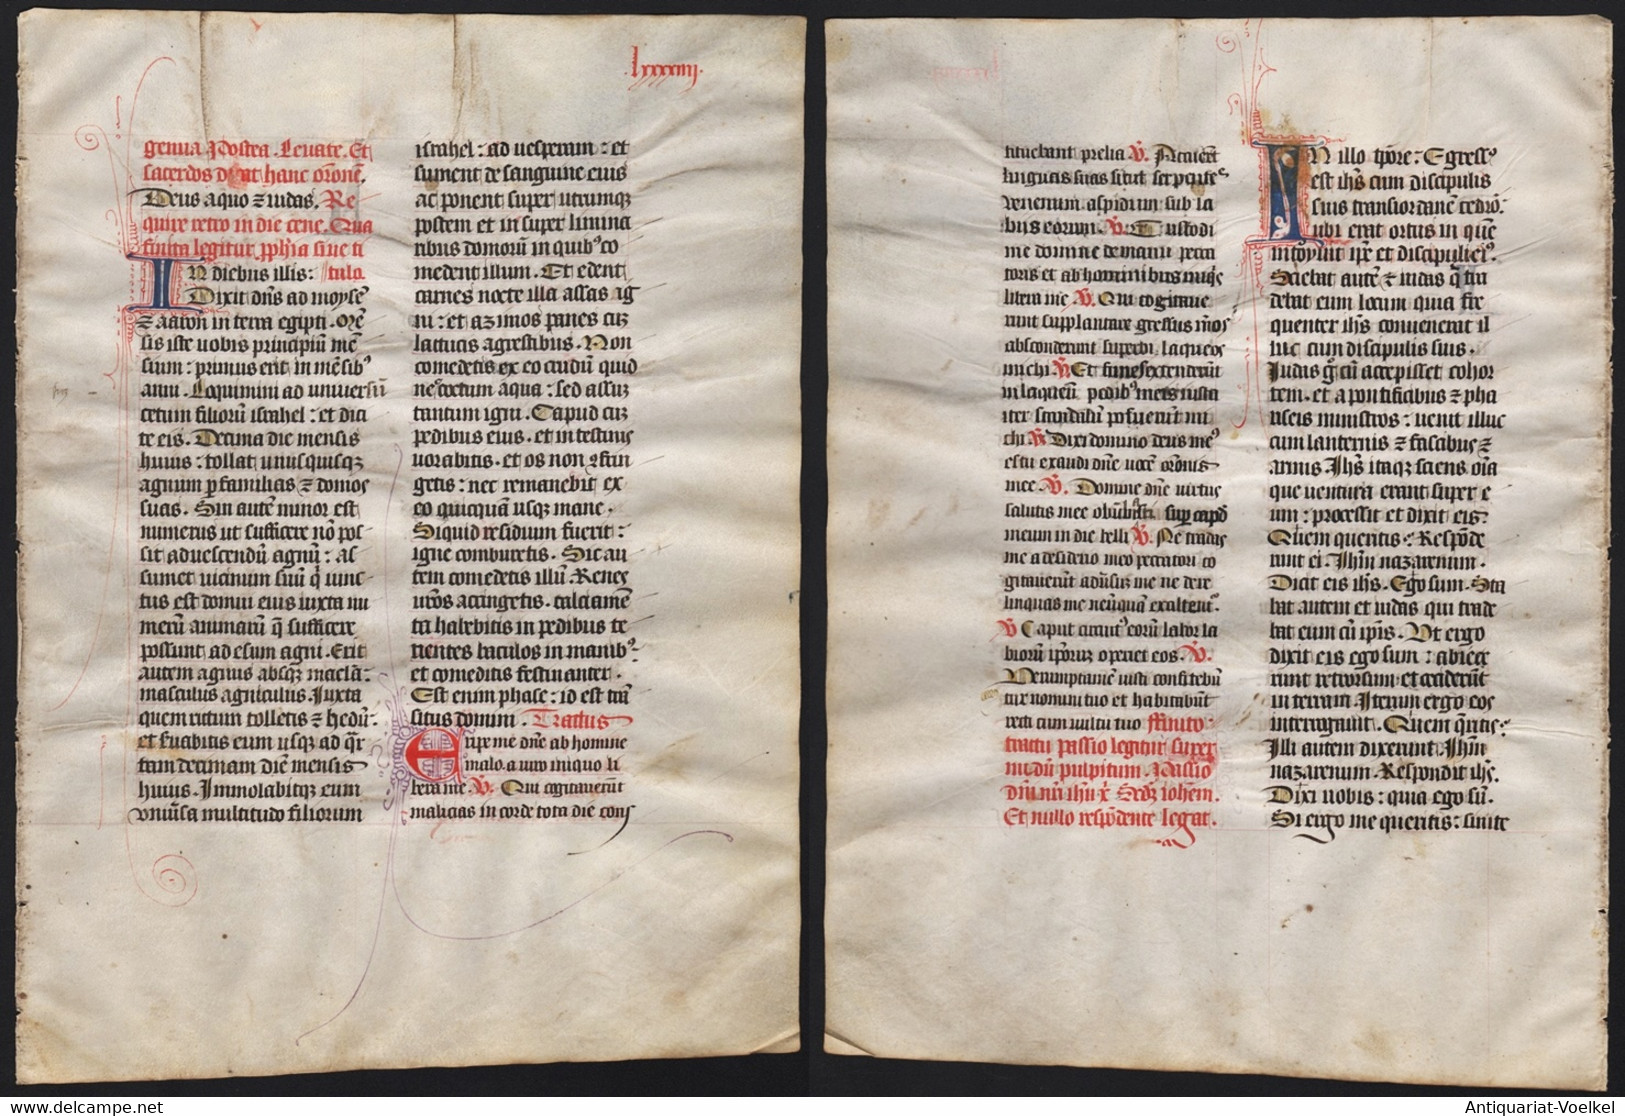 .lxxxxiiij.
genua Postea. Levate. Et
sacerdos dicat hanc orōnem.
Deus a quo ⁊ iudas. Re
quire retro in die cene. Qua
finita legitur pphia sine ti
IN diebus illis: tulo.
Dixit dn̄s ad moysen
⁊ aaron in terra egipti. Men
sis iste uobis principiū men
sium: primus erit in mēsib⁹
anni. Loquimini ad universū
cetum filiorū israhel: et dici
te eis. Decima die mensis
huius: tollat unusquisqꝫ
agnum p familias ⁊ domos
suas. Sin autē minor est
numerus ut sufficere nō pos
sit ad uescendū agnū: as
sumet uicinum suū qͥ iunc
tus est domui eius iuxta nu
merū animarū q̄ sufficere
possunt ad esum agni. Erit
autem agnus absqꝫ macula:
masculus agniculus. Juxta
quem ritum tolletis ⁊ hedū:
et seruabitis eum usqꝫ ad qͣr
tam decimam diē mensis
huius. Immolabitqꝫ eum
vniūsa multitudo filiorum
israhel: ad uesperam: et
sument de sanguine eius
ac ponent super utrumqꝫ
postem et in super limina
ribus domorū in quib⁹ co
medent illum. Et edent
carnes nocte illa assas ig
ni: et azimos panes cuꝫ
lattucis agrestibus. Non
comedetis ex eo crudū quid
nec coctum aqua: sed assuꝫ
tantum igni. Capud cuꝫ
pedibus eius. et intestinis
uorabitis. et os non 9frin
getis: nec remanebit ex
eo quicquā usqꝫ mane.
Siquid residium fuerit:
igne comburetis. Sic au
tem comedetis illū. Renes
uros accingetis. calciamen
ta habebitis in pedibus te
nentes baculos in manib⁹
et comeditis festinanter.
Est enim phase: id est trā
situs domini. Tractus
Eripe me dn̄e ab homine
malo. a uiro iniquo li
bera me. V̄. Qui cogitauerūt
malicias in corde tota die cons
tituebant prelia V̄. Acuerūt
linguas suas sicut serpentes
uenenum aspidum sub la
biis eorum. V̄. Custodi
me domine de manu pecca
toris et ab hominibus iniqͥs
libera me V̄. Qui cogitaue
runt supplantare gressus meos
absconderunt superbi laqueos
michi V̄ Et funes extenderūt
in laqueū pedib⁹ meis iuxta
iter scandalū posuerūt mi
chi V̄ Dixi domino deus me⁹
es tu exaudi dn̄e uocē orōnis
mee V̄. Domine dn̄e uirtus
salutis mee obūbrasti sup caput
meum in die belli V̄ Ne tradas
me a desiderio meo peccatori co
gitauerūt adūsuꝫ me ne dere
linquas me neūquā exaltent⁹.
V̄ Caput circuit⁹ eorū labor la
biorū ipoꝝ operiet eos. V̄.
Verumptamē iusti confitebūt
tur nomini tuo et habitabūt
recti cum uultu tuo Finito
tractu passio legitur super
nudū pulpitum. Passio
dn̄i nr̄i ihū xͥ Secdꝫ iohem.
Et nullo respondente legat.
IN illo tp̄re: Egress⁹
est ihs cum discipulis
suis trans iordanē cedrō.
ubi erat ortus in quē
introyuit ipē et discipuli ei⁹.
Sciebat autē ⁊ iudas qͥ tra
debat eum locum quia fre
quenter ihs conuenerat il
luc cum discipulis suis.
Judas g̊ cū accepisset cohor
tem. et a pontificibus ⁊ pha
riseis ministros: uenit illuc
cum lanternis ⁊ facibus ⁊
armis Ihs itaqꝫ sciens oīa
que ventura erant super e
um: processit et dixit eis:
Quem queritis: Respōde
runt ei. Ihm̄ nazarenum.
Dicit eis ihs. Ego sum. Sta
bat autem et iudas qui trade
bat eum cū ipsis. Ut ergo
dixit eis ego sum: abierūt
runt retrorsum et ceciderūt
in terram Iterum ergo eos
interrogauit. Quem qͥritis:
Illi autem dixerunt. Ihm̄
nazarenum. Respondit ihs.
Dixi uobis: quia ego sū.
Si ergo me queritis: sinite
Antiquariat-Voelkel